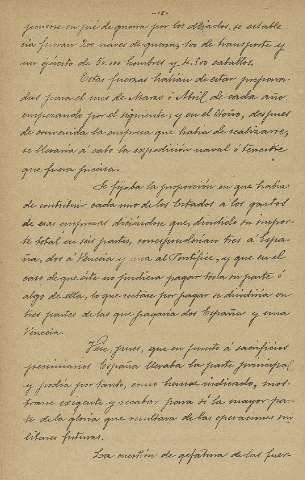 -18-
ponerse en pié de guerra por los aliados, se estable
cía fueran 200 naves de guerra, 100 de transporte y
un ejército de 50.000 hombres y 4.500 caballos.
Estas fuerzas habían de estar prepara-
das para el mes de Marzo ó Abril de cada año
empezando por el siguiente, y en el Otoño, despues
de convenida la empresa que había de realizarse,
se llevaría á cabo la expedición naval ó terrestre
que fuera precisa.
Se fijaba la proporción en que había
de contribuir cada uno de los Estados á los gastos
de esas empresas diciéndose que, dividido su impor-
te total en seis partes, corresponderían tres á Espa-
ña, dos á Venecia y una al Pontífice, y que en el
caso de que éste no pudiera pagar toda su parte ó
algo de ella, lo que restase por pagar se dividiría en
tres partes de las que pagaría dos España y una
Venecia.
Vése, pues, que en punto á sacrificios
pecuniarios España llevaba la parte principal
y podía por tanto, como hemos indicado, mos-
trarse exigente y recabar para sí la mayor par-
te de la gloria que resultara de las operaciones mi
litares futuras.
La cuestión de jefatura de las fuer-